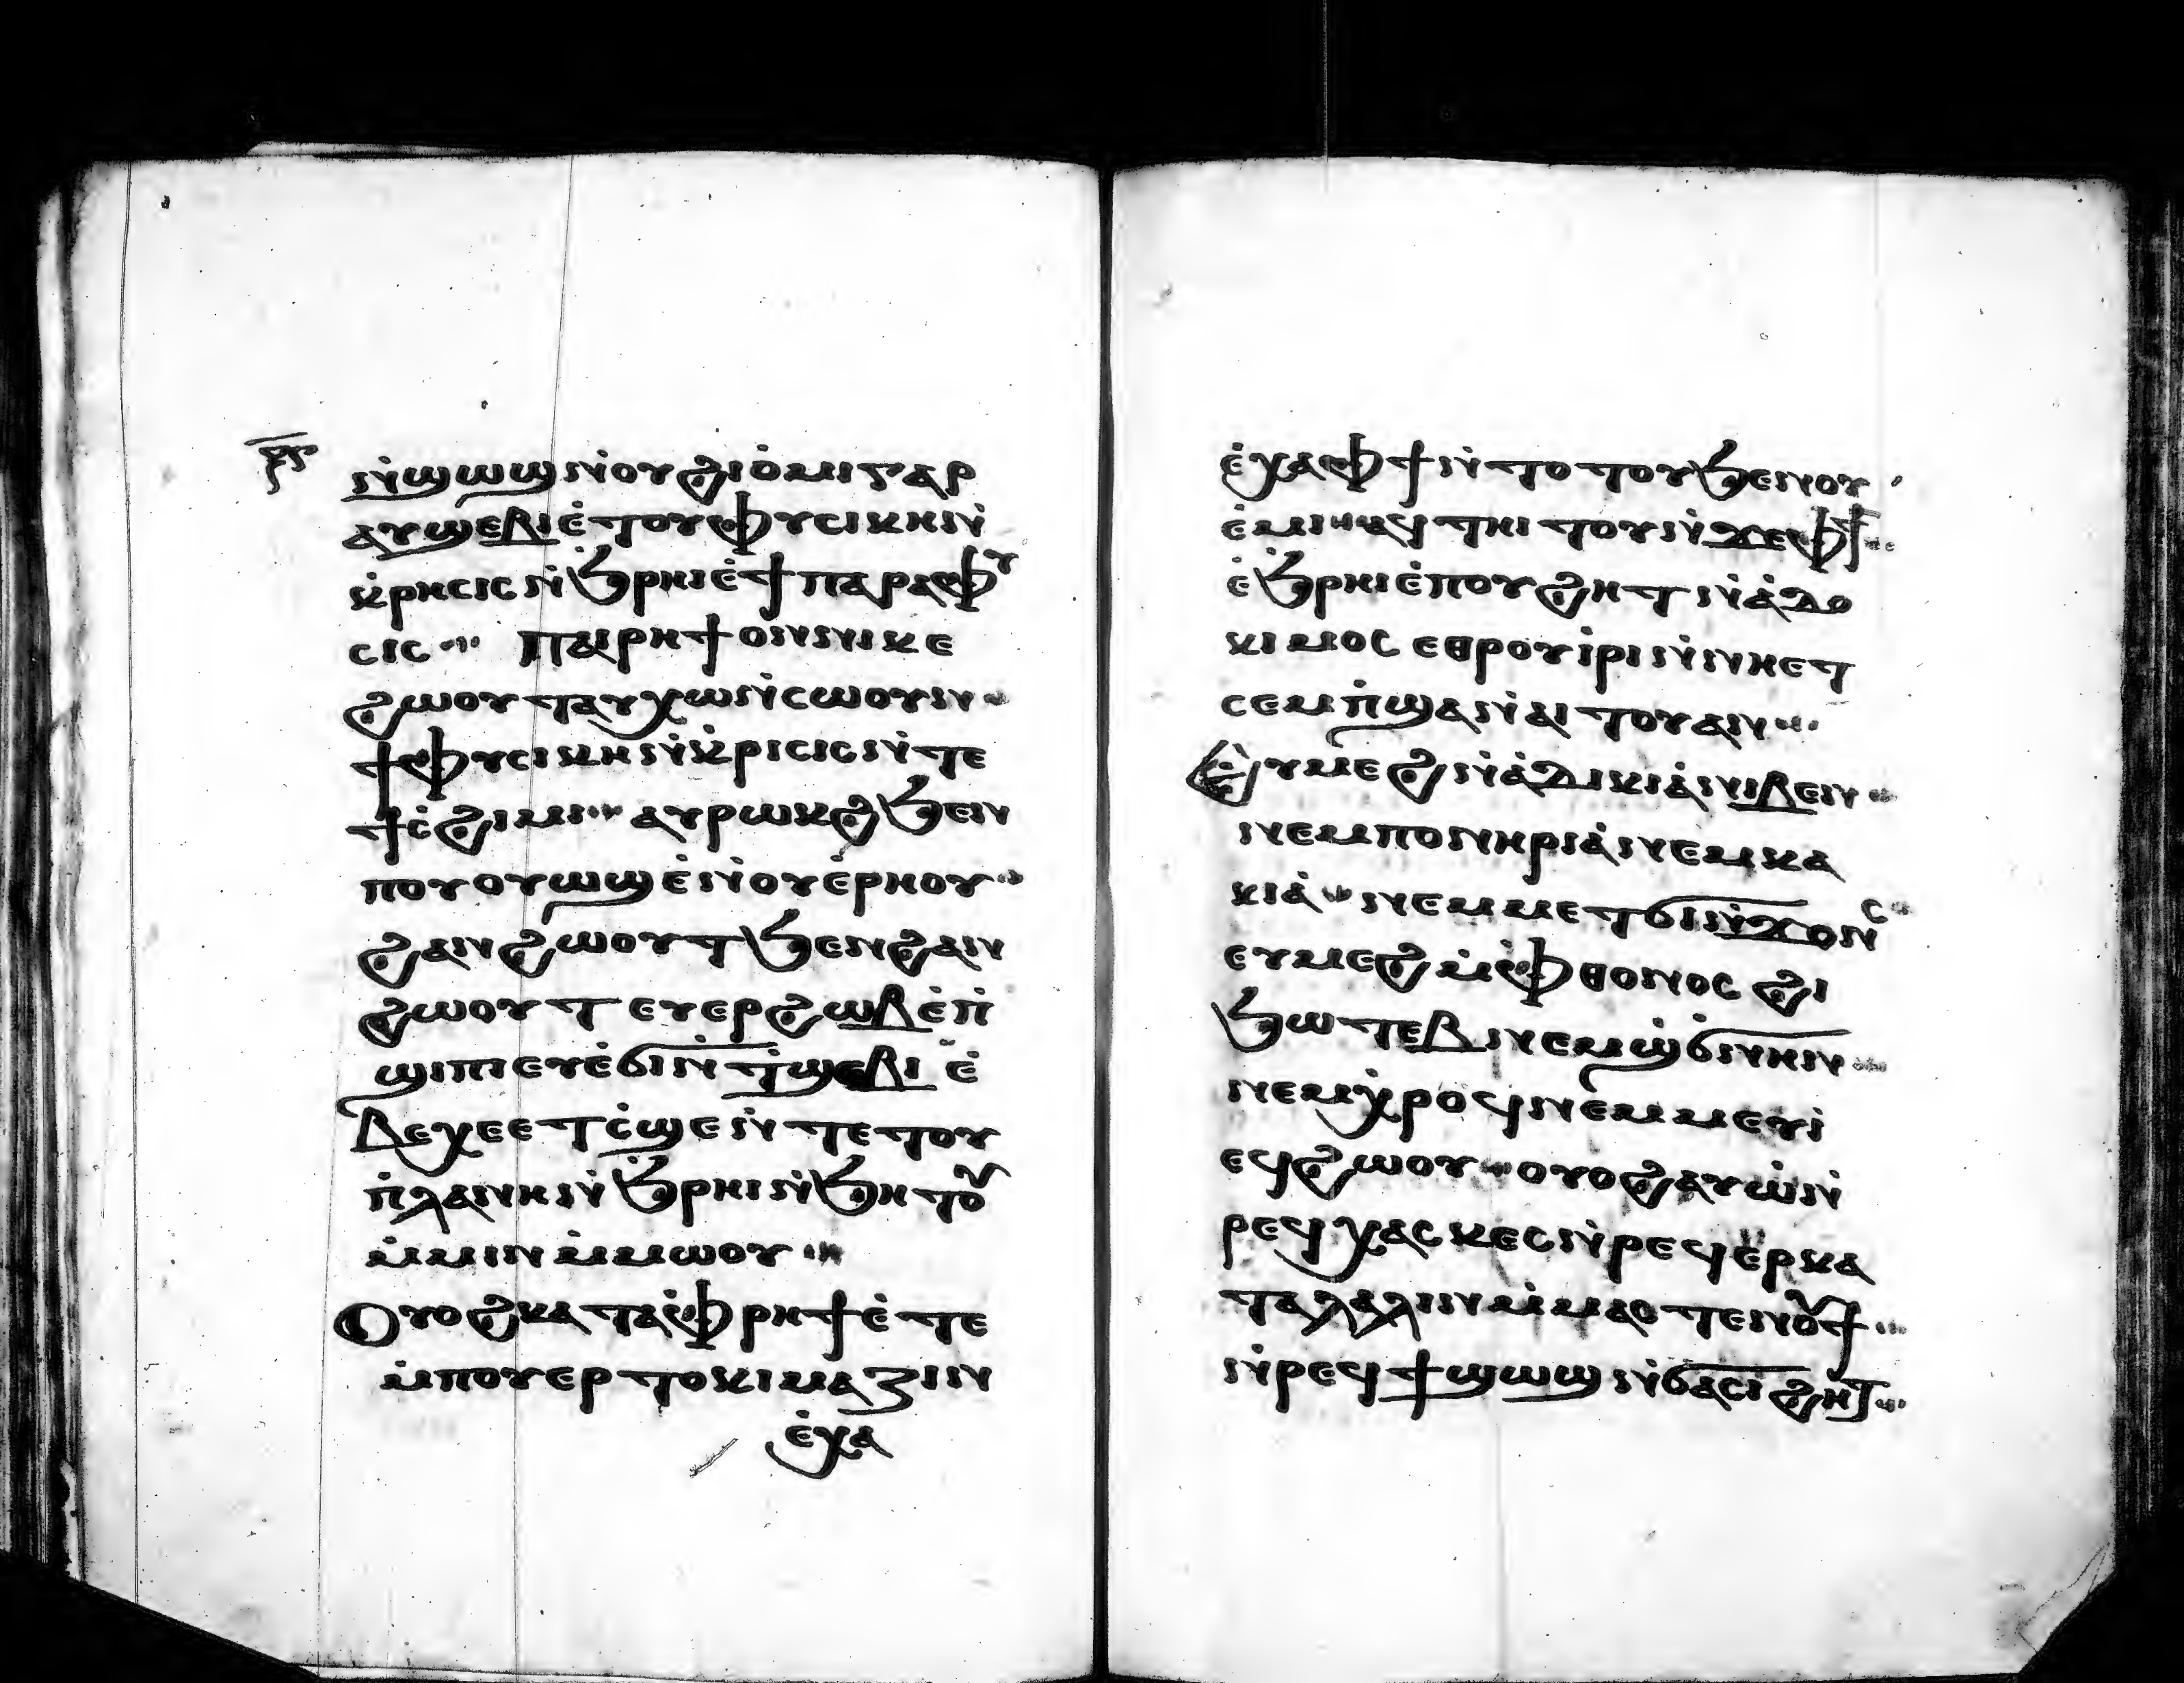 ⲣ̅ⲋ̅
ⲛ̇ϣⲱϣ ⲛ̇ⲟⲩϩⲓⲟ̇ⲙⲓ ⲅⲁⲣ
ⲁⲩϣⲉⲃⲓⲉ̇ⲧⲟⲩⲫⲩⲥⲓⲕⲏ ⲛ̇
ⲭ̇ⲣⲏⲥⲓⲥ ⲛ̇ϧ̇ⲣⲏⲓ ⲉ̇ϯⲡⲁⲣⲁⲫⲩ
ⲥⲓⲥ ⲡⲁⲓⲣⲏϯ ⲟⲛ ⲛⲓⲕⲉ
ϩⲱⲟⲩⲧ ⲁⲩⲭⲱ ⲛ̇ⲥⲱⲟⲩ ⲛ
ϯⲫⲩⲥⲓⲕⲏ ⲛ̇ⲭ̇ⲣⲓⲥⲓⲥ ⲛ̇ⲧⲉ
ϯⲥ̇ϩⲓⲙⲓ ⲁⲩⲣⲱⲕϩ ϧⲉⲛ
ⲡⲟⲩⲟⲩⲱϣ ⲉ̇ⲛ̇ⲟⲩⲉ̇ⲣⲏⲟⲩ
ϩⲁⲛϩⲱⲟⲩⲧ ϧⲉⲛ ϩⲁⲛ
ϩⲱⲟⲩⲧ ⲉⲩⲉⲣϩⲱⲃ ⲉ̇ⲡ̇
ϣⲓⲡⲓ ⲉⲩⲉ̇ϭⲓ ⲛ̇ⲧ̇ϣⲉⲃⲓⲉ̇
ⲃⲉⲭⲉ ⲉⲧⲥ̇ϣⲉ ⲛ̇ⲧⲉ ⲧⲟⲩ
ⲡ̇ⲗⲁⲛⲏ ⲛ̇ϧ̇ⲣⲏⲓ ⲛ̇ϧⲏⲧⲟⲩ
ⲙ̇ⲙⲓⲛ ⲙ̇ⲙⲱⲟⲩ
Ⲟⲩⲟϩ ⲕⲁⲧⲁ ⲫ̇ⲣⲏϯ ⲉ̇ⲧⲉ
ⲙ̇ⲡⲟⲩⲉⲣⲧⲟⲕⲓⲙⲁⲍⲓⲛ
ⲉ̇ⲭⲁ
ⲉ̇ⲭⲁ ⲫϯ ⲛ̇ⲧⲟⲧⲟⲩ ϧⲉⲛ ⲟⲩ
ⲉ̇ⲙⲓ ⲁϥⲧⲏⲓⲧⲟⲩ ⲛ̇ϫⲉ ⲫϯ
ⲉ̇ϧ̇ⲣⲏⲓ ⲉ̇ⲡⲟⲩϩⲏⲧ ⲛ̇ⲁ̇ⲇⲟ
ⲕⲓⲙⲟⲥ ⲉⲑⲣⲟⲩⲓ̇ⲣⲓ ⲛ̇ⲛⲏⲉⲧ
ⲥⲉⲙⲡ̇ϣⲁ ⲛ̇ⲁⲓⲧⲟⲩ ⲁⲛ
Ⲉⲩⲙⲉϩ ⲛ̇ⲁ̇ⲇⲓⲕⲓⲁ̇ ⲛⲓⲃⲉⲛ
ⲛⲉⲙ ⲡⲟⲛⲏⲣⲓⲁ̇ ⲛⲉⲙ ⲕⲁ
ⲕⲓⲁ̇ ⲛⲉⲙ ⲙⲉⲧϭⲓⲛ̇ϫⲟⲛⲥ
ⲉⲩⲙⲉϩ ⲙ̇ⲫⲑⲟⲛⲟⲥ ϩⲓ
ϧⲱⲧⲉⲃ ⲛⲉⲙ ϣ̇ϭⲛⲏⲛ
ⲛⲉⲙ ⲭ̇ⲣⲟϥ ⲛⲉⲙ ⲙⲉⲩⲓ̇
ⲉϥϩⲱⲟⲩ ⲟⲩⲟϩ ⲁⲩⲱ̇ ⲛ̇
ⲣⲉϥⲭⲁⲥⲕⲉⲥ ⲛ̇ⲣⲉϥⲉⲣⲕⲁ
ⲧⲁⲗⲁⲗⲓⲛ ⲙ̇ⲙⲁⲥⲧⲉⲛⲟⲩϯ
ⲛ̇ⲣⲉϥϯϣⲱϣ ⲛ̇ϭⲁⲥⲓϩⲏⲧ